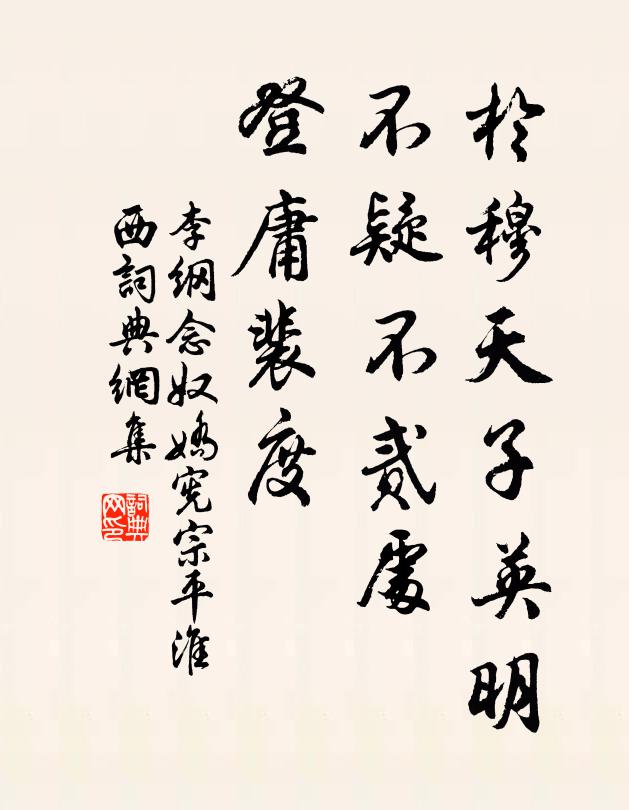 於穆天子英明
不疑不貳處
登庸裴度
李綱念奴嬌憲宗平淮
西詞典網集
詞典
网印